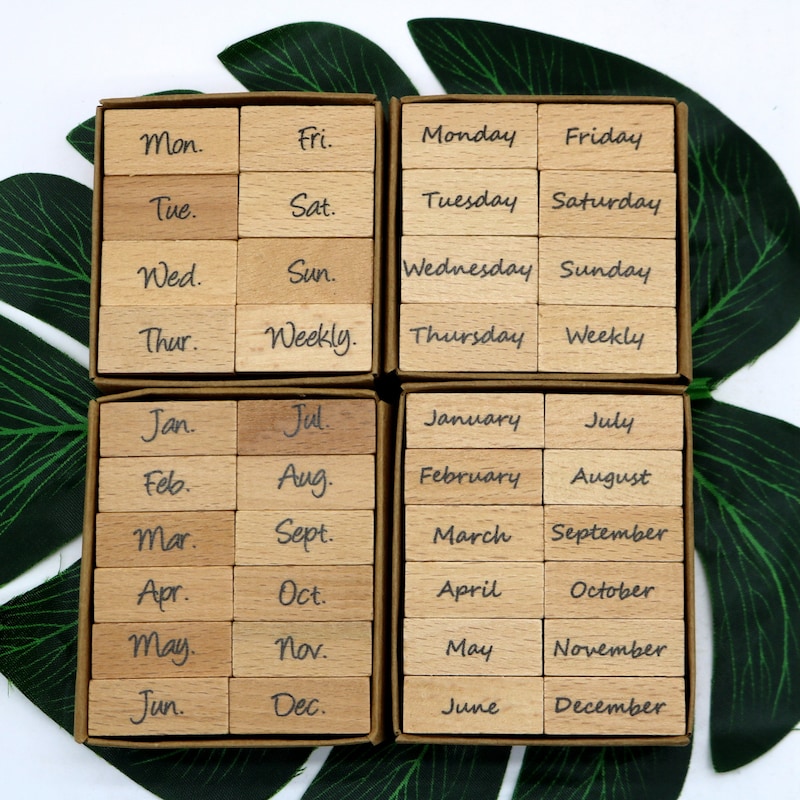 Mon. Fri.
Tue. Sat.
Wed. Sun.
Thur. Weekly.
Monday Friday
Tuesday Saturday
Wednesday Sunday
Thursday Weekly
Jan. Jul.
Feb. Aug.
Mar. Sept.
Apr. Oct.
May. Nov.
Jun. Dec.
January July
February August
March September
April October
May November
June December